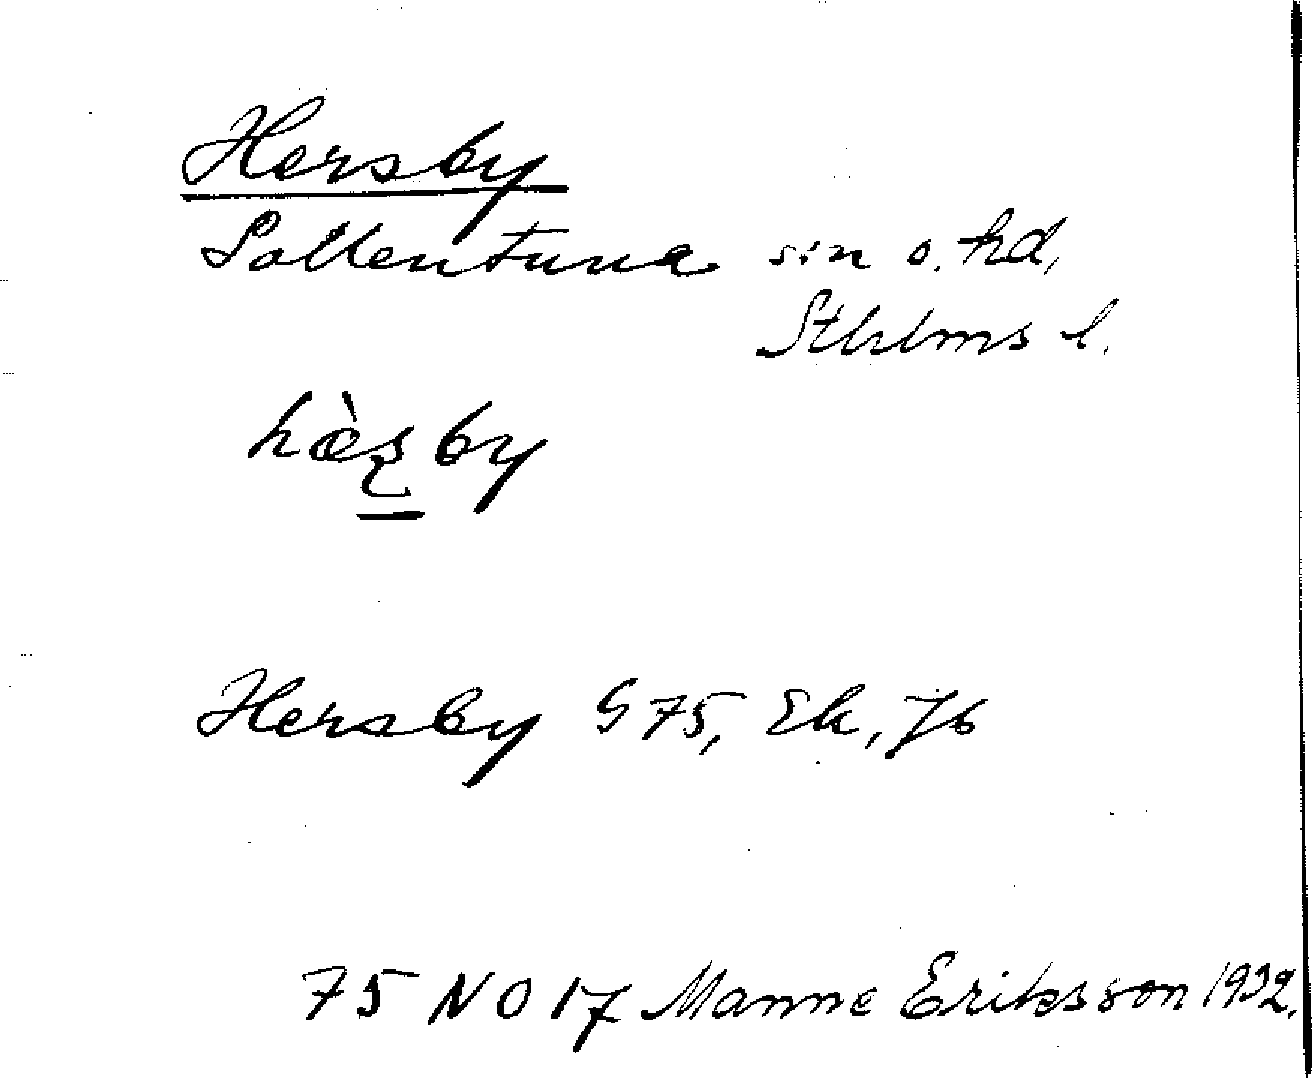 Hersby
Sollentuna sn o. hd,
Sthlms l.
hæ̀ʂby
Hersby G 75, Ek, Jb
75 NO 17 Manne Eriksson 1932.